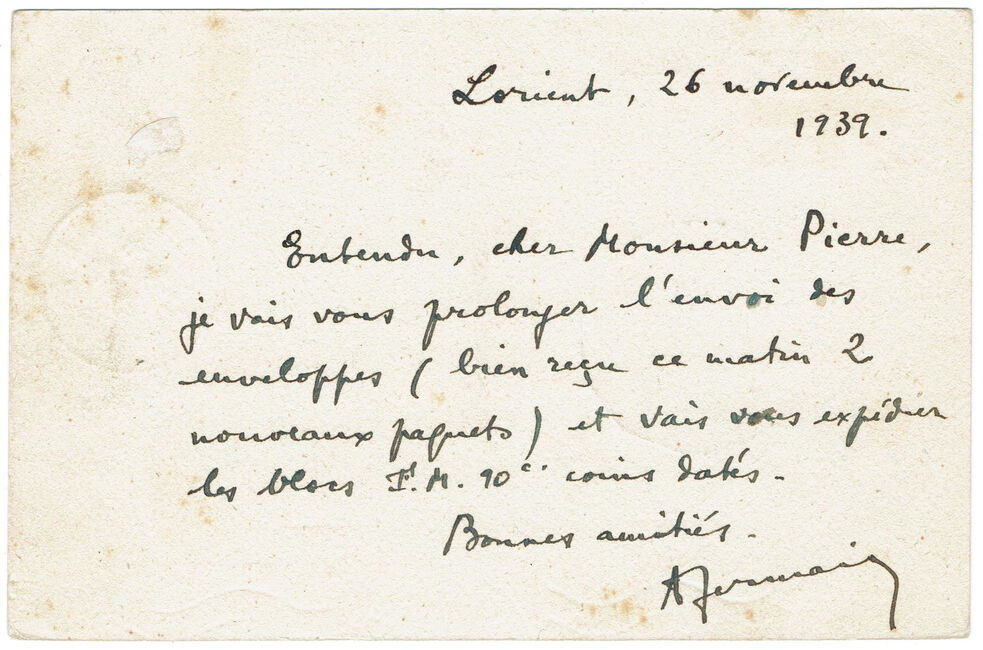 Lorient, 26 novembre
1939.
Entendu, cher Monsieur Pierre,
je vais vous prolonger l'envoi des
enveloppes (bien reçu ce matin 2
nouveaux paquets) et vais vous expédier
les blocs F.M. 90c. coins datés.
Bonnes amitiés.
A Germain